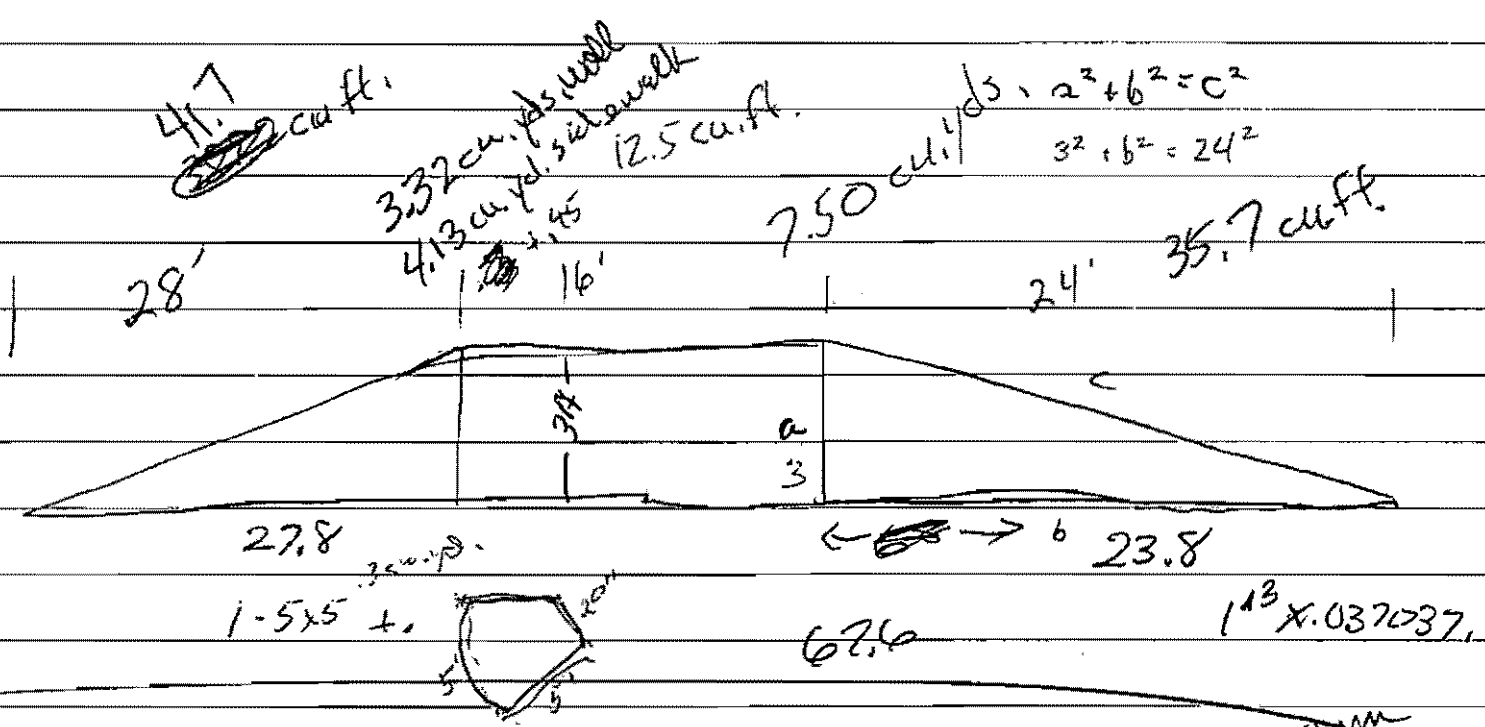 41.7
cu ft.
3.32 cu. yds. wall
4.13 cu. yd. sidewalk
+.45
12.5 cu. ft.
7.50 cu. yds.
a² + b² = c²
3² + b² = 24²
35.7 cu ft.
28'
16'
24'
3ft
c
a
3
27.8
b
23.8
1 - 5x5 +.
20"
5'
5'
67.6
1^13 x .037037.